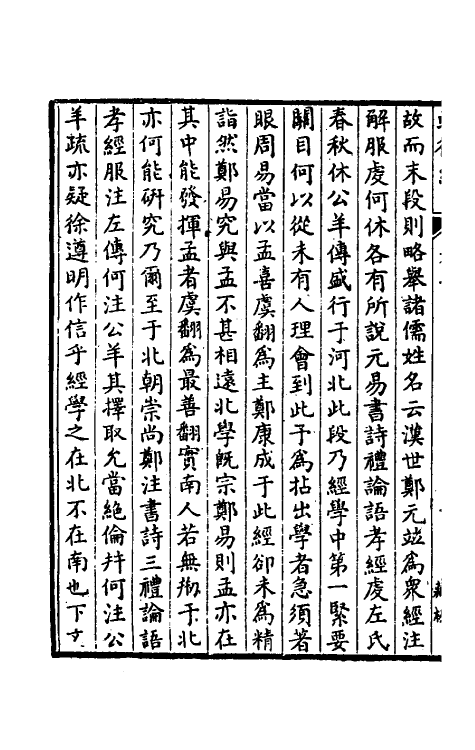 故而末段則略舉諸儒姓名云漢世鄭元竝為衆經注
解服虔何休各有所說元易書詩禮論語孝經虔左氏
春秋休公羊傳盛行于河北此段乃經學中第一緊要
關目何以從未有人理會到此予為拈出學者急須著
眼周易當以孟喜虞翻為主鄭康成于此經卻未為精
詣然鄭易究與孟不甚相遠北學既宗鄭易則孟亦在
其中能發揮孟者虞翻為最善翻實南人若無
于北
亦何能研究乃爾至于北朝崇尚鄭注書詩三禮論語
孝經服注左傳何注公羊其擇取允當絕倫幷何注公
羊疏亦疑徐遵明作信乎經學之在北不在南也下